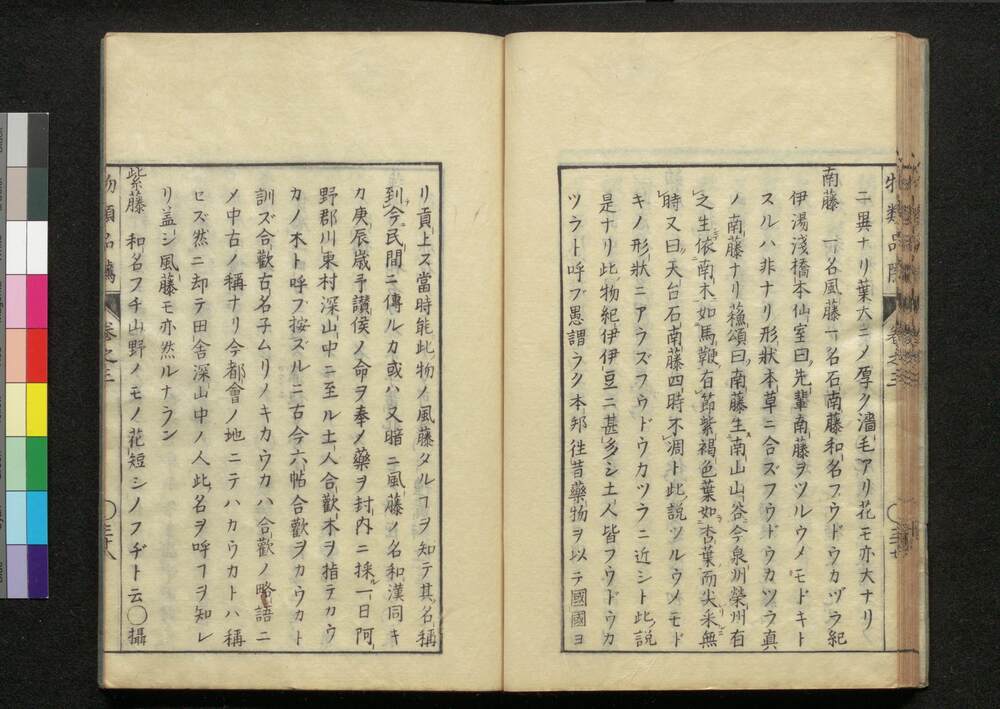 物類品隲 卷之三 〇三十八
ニ異ナリ葉大ニメ厚ク濇毛アリ花モ亦大ナリ
南藤 一名風藤一名石南藤和名フウドウカヅラ紀
伊湯淺橋本仙室曰先輩南藤ヲツルウメモドキト
スルハ非ナリ形狀本草ニ合ズフウドウカツラ真
ノ南藤ナリ蘓頌曰南藤生南山山谷今泉州榮州有
之生依南木如馬鞭有節紫褐色葉如杏葉而尖采無
時又曰天台石南藤四時不凋ト此説ツルウメモド
キノ形狀ニアラズフウドウカツラニ近シト此説
是ナリ此物紀伊伊豆ニ甚多シ土人皆フウドウカ
ツラト呼ブ愚謂ラク本邦徃昔藥物ヲ以テ國國ヨ
リ貢上ス當時能此物ノ風藤タルヿヲ知テ其名稱
到今民間ニ傳ルカ或ハ又暗ニ風藤ノ名和漢同キ
カ庚辰歳予讃侯ノ命ヲ奉メ藥ヲ封内ニ採一日阿
野郡川東村深山中ニ至ル土人合歡木ヲ指テカウ
カノ木ト呼ブ按ズルニ古今六帖合歡ヲカウカト
訓ズ合歡古名子ムリノキカウカハ合歡ノ略語ニ
メ中古ノ稱ナリ今都會ノ地ニテハカウカトハ稱
セズ然ニ却テ田舎深山中ノ人此名ヲ呼ヿヲ知レ
リ盖シ風藤モ亦然ルナラン
紫藤 和名フチ山野ノモノ花短シノフヂト云〇攝
物類品隲 卷之三 〇三十八